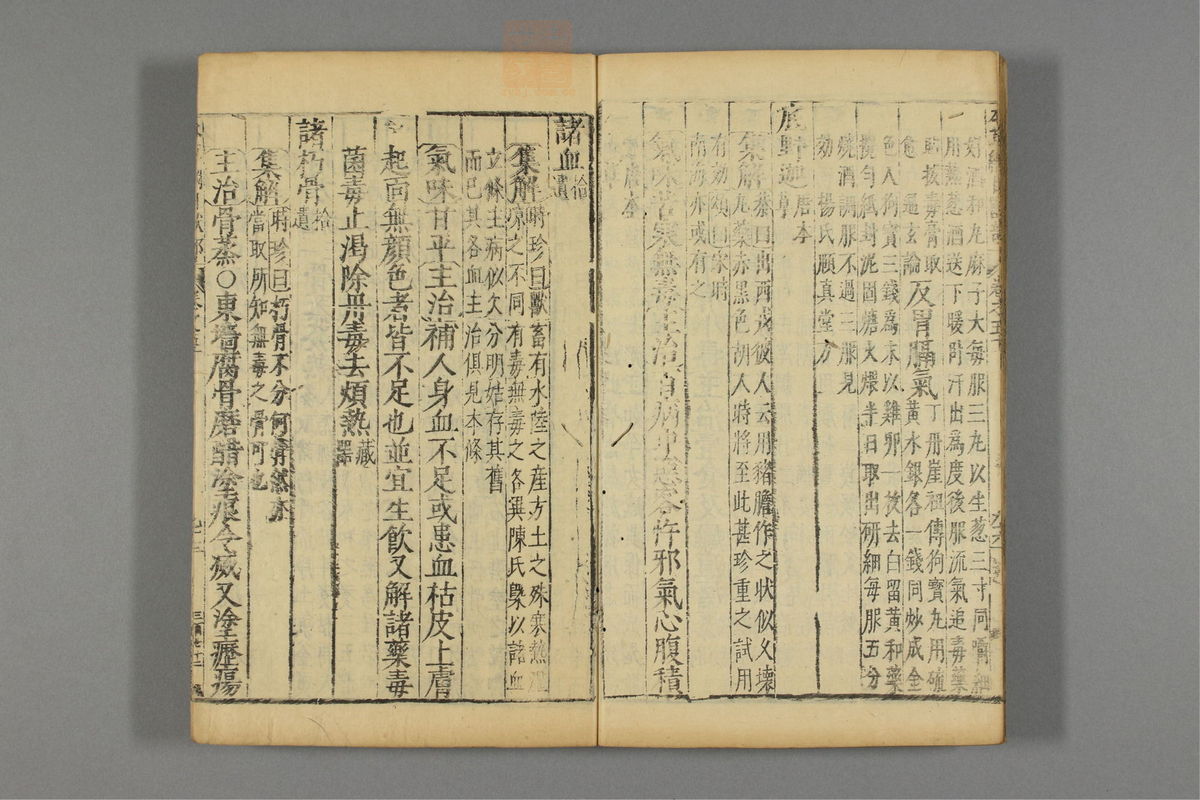 好酒和丸麻子大每服三丸以生葱三寸同嚼細
用熱葱酒送下暖臥汗出爲度後服流氣追毒藥
取拔毒膏取
愈 通玄論
反胃膈氣
丁丹崖祖傳狗寶丸用
黃水銀各一錢同炒成金
色入狗寶三錢爲末以雞卵一枚去白留黃和藥
攪勻紙封泥固煻火煨半日取出研細每服五分
燒酒調服不過三服見
効 楊氏頤真堂方
底野迦 唐本草
集解
恭曰出西戎彼人云用豬膽作之狀似久壞
丸藥赤黑色胡人時將至此甚珍重之試用
有効頌曰宋時
南海亦或有之
氣味苦寒無毒主治百病中惡客忤邪氣心腹積
諸血 拾遺
集解
時珍曰獸畜有水陸之產方土之殊寒熱溫
凉之不同有毒無毒之各異陳氏槩以諸血
立條主病似欠分明姑存其舊
而已其各血主治俱見本條
氣味甘平主治補人身血不足或患血枯皮上膚
起面無顏色者皆不足也並宜生飲又解諸藥毒
菌毒止渴除丹毒去煩熱 藏器
諸朽骨 拾遺
集解
時珍曰朽骨不分何骨然亦
當取所知無毒之骨可也
主治骨蒸○東墻腐骨磨醋塗痕令滅又塗癧瘍